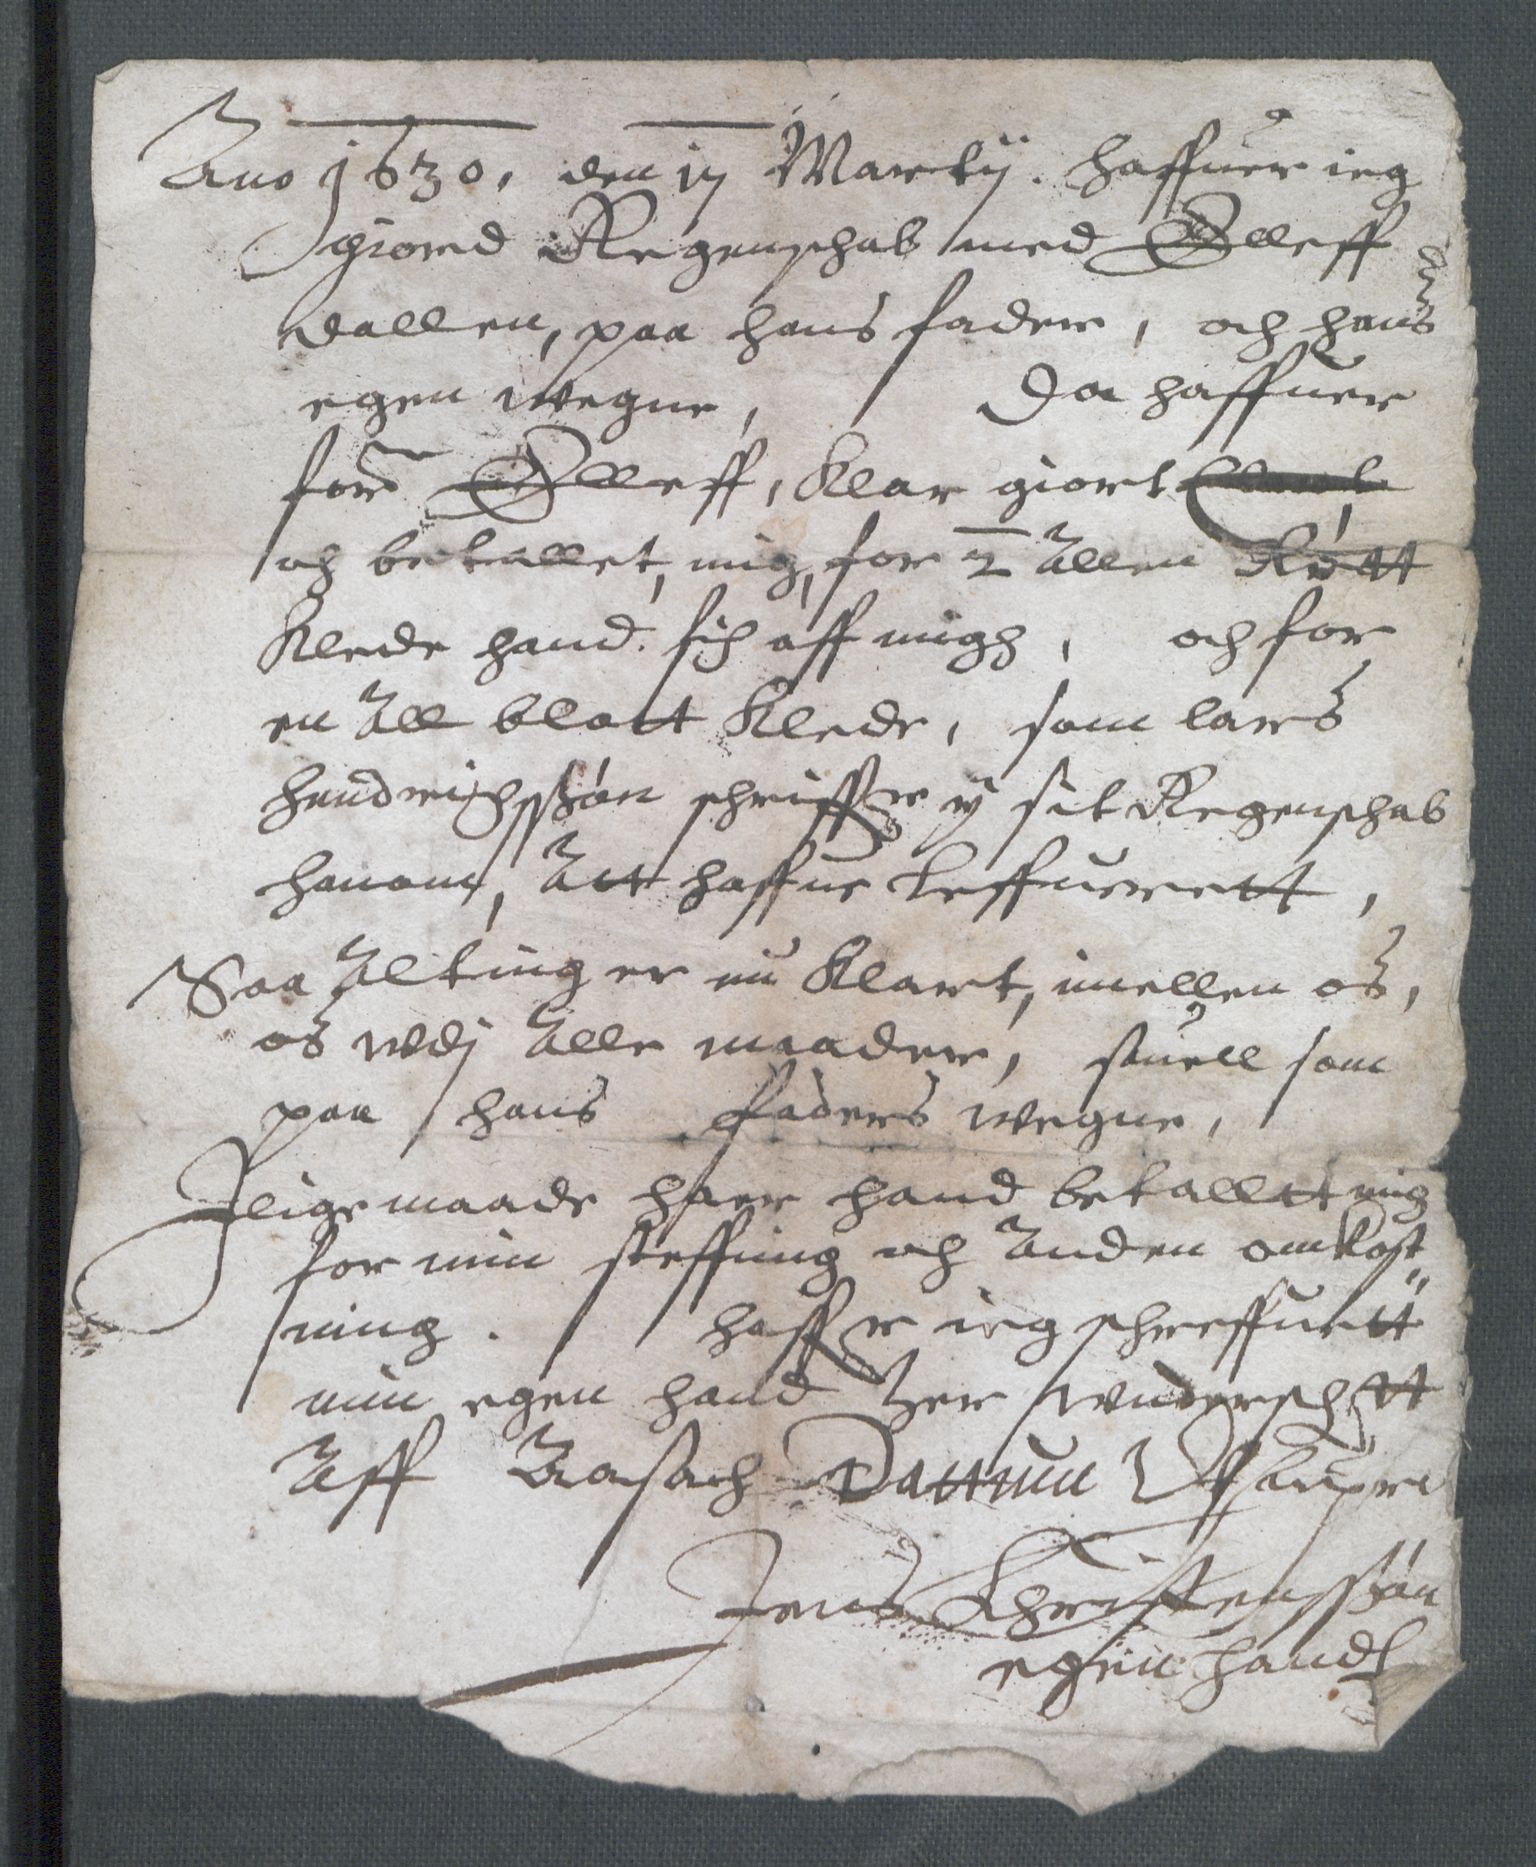 Ano 1630, den 17 Martij. haffuer ieg
giord Regenschab med Olleff
dallen, paa hans fader, och hans
egen wegne, Da haffuer
for^ne Olleff, klar giort
och betallet, mig, for 2 Allen Rött
klede hand fich aff migh, och for
en All blatt klede, som lars
hendrichssøn schriffr y sit Regenschab
hanom, Att haffue leffuerett,
Saa Alting er nu klart, imellen os,
os wdj Alle maader, suell som
paa hans faders wegne,
J lige maade haer hand betallett mig
for min steffning och Anden omkost
ning. haffr ieg schreffuett
min egen hand her wnderschtt
Aff Aasach Dattum Vtsupra
Jens Christenssøn
egen handt